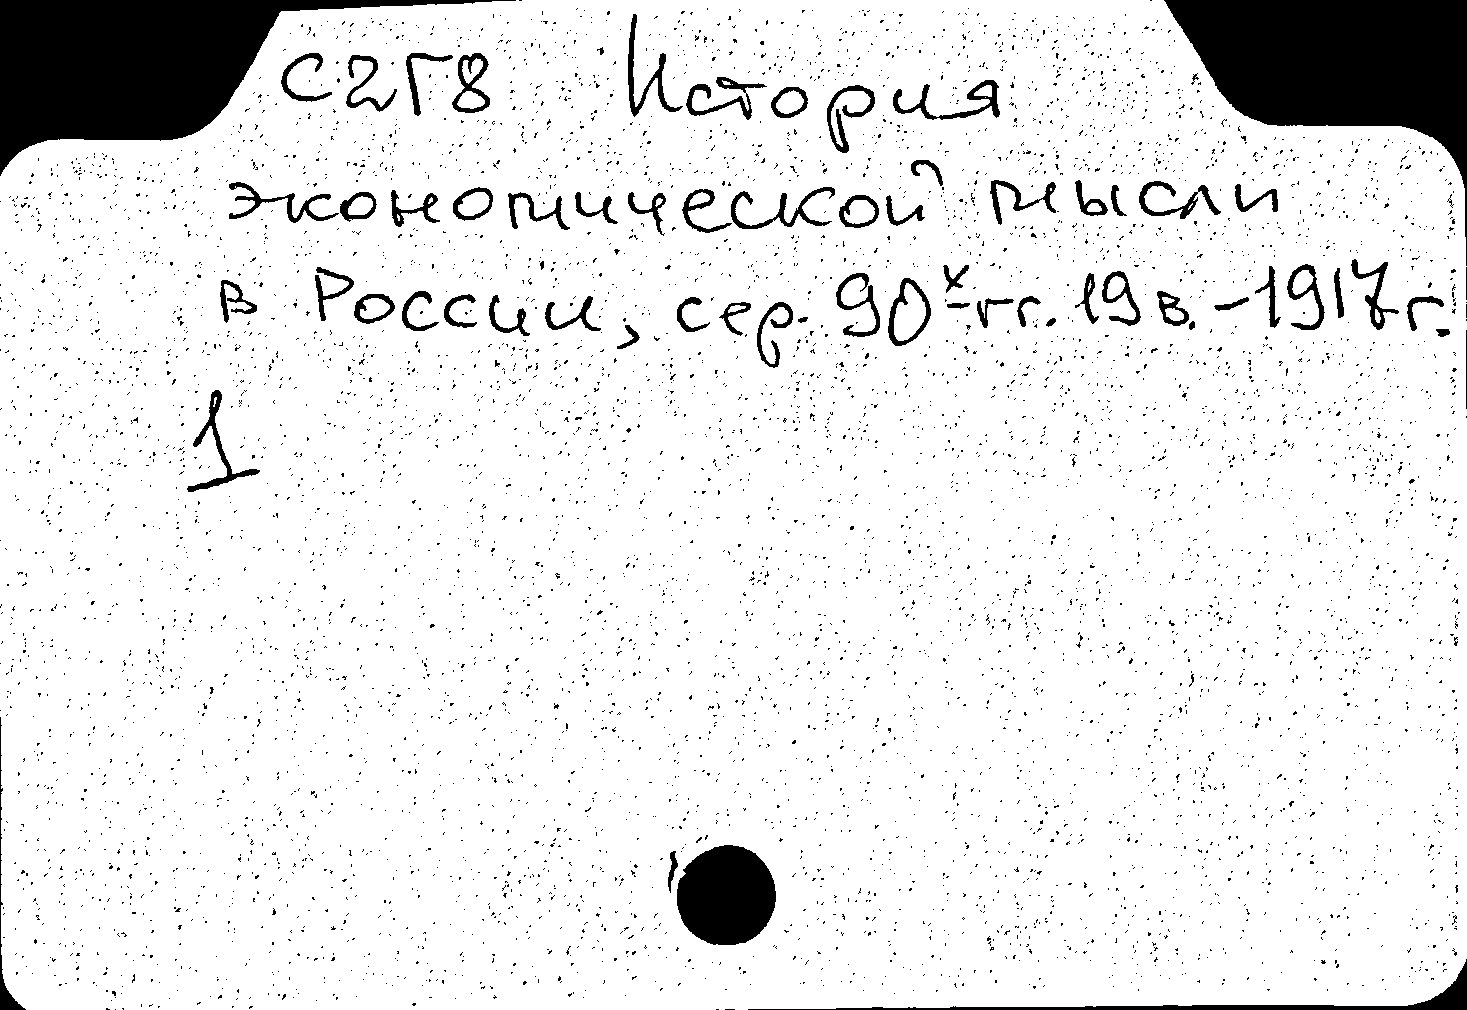 С2Г8 История
экономической мысли
в России, сер. 90х-гг. 19 в. - 1917 г.
1